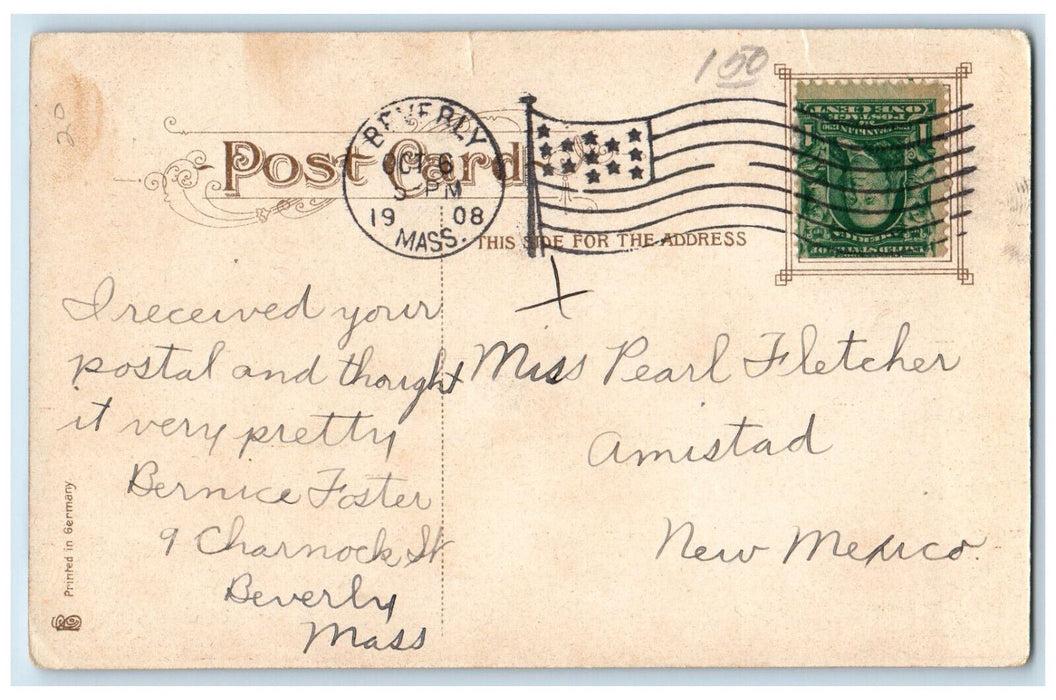 150
20
POST CARD
BEVERLY
OCT 6
PM
19 08
MASS.
THIS SIDE FOR THE ADDRESS
ONE CENT
POSTAGE
1 1
UNITED STATES OF AMERICA
I received your
postal and thought
it very pretty
Bernice Foster
9 Charnock St
Beverly
Mass
Miss Pearl Fletcher
Amistad
New Mexico.
Printed in Germany